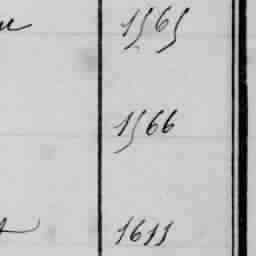 1565
1566
1611